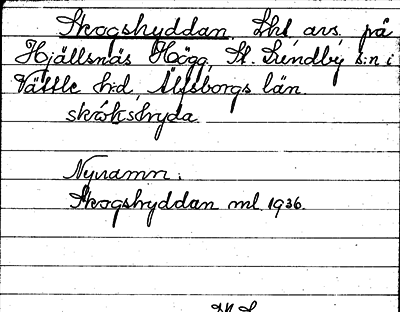 Skogshyddan, Lht avs. på
Hjällsnäs Högg, St. Lundby s:n i
Vättle h:d, Älfsborgs län.
skrókshyda
Nynamn:
Skogshyddan ml 1936.